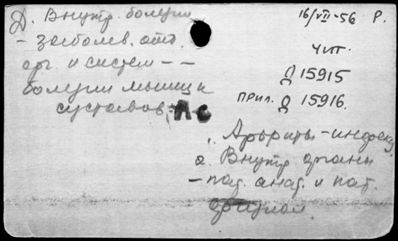 Д. Внутр. болезни
16/VII-56 Р.
- заболев. отд.
орг. и систем - -
болезни мышц и
суставов -
чит.
Д 15915
прил. Д 15916.
1. Артриты - инфекц.
2. Внутр. органы
- пат. анат. и пат.
физиол.